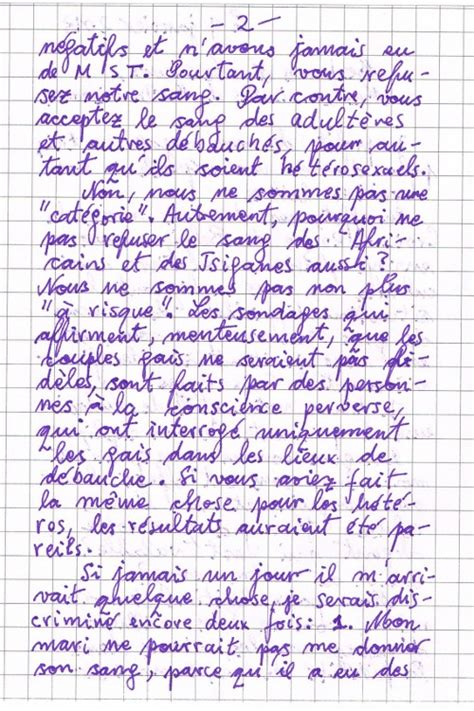 - 2 -
négatifs et n'avons jamais eu
de M S T. Pourtant, vous refu-
sez notre sang. Par contre, vous
acceptez le sang des adultères
et autres débauchés, pour au-
tant qu'ils soient hétérosexuels.
Non, nous ne sommes pas une
"catégorie". Autrement, pourquoi ne
pas refuser le sang des Afri-
cains et des Tsiganes aussi ?
Nous ne sommes pas non plus
"à risque". Les sondages qui
affirment, menteusement, que les
couples gais ne seraient pas fi-
dèles, sont faits par des person-
nes à la conscience perverse,
qui ont interrogé uniquement
les gais dans les lieux de
débauche. Si vous aviez fait
la même chose pour les hété-
ros, les résultats auraient été pa-
reils.
Si jamais un jour il m'arri-
vait quelque chose, je serais dis-
criminé encore deux fois: 1. Mon
mari ne pourrait pas me donner
son sang, parce qu'il a eu des